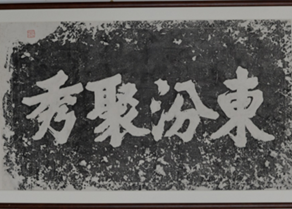 東汾聚秀